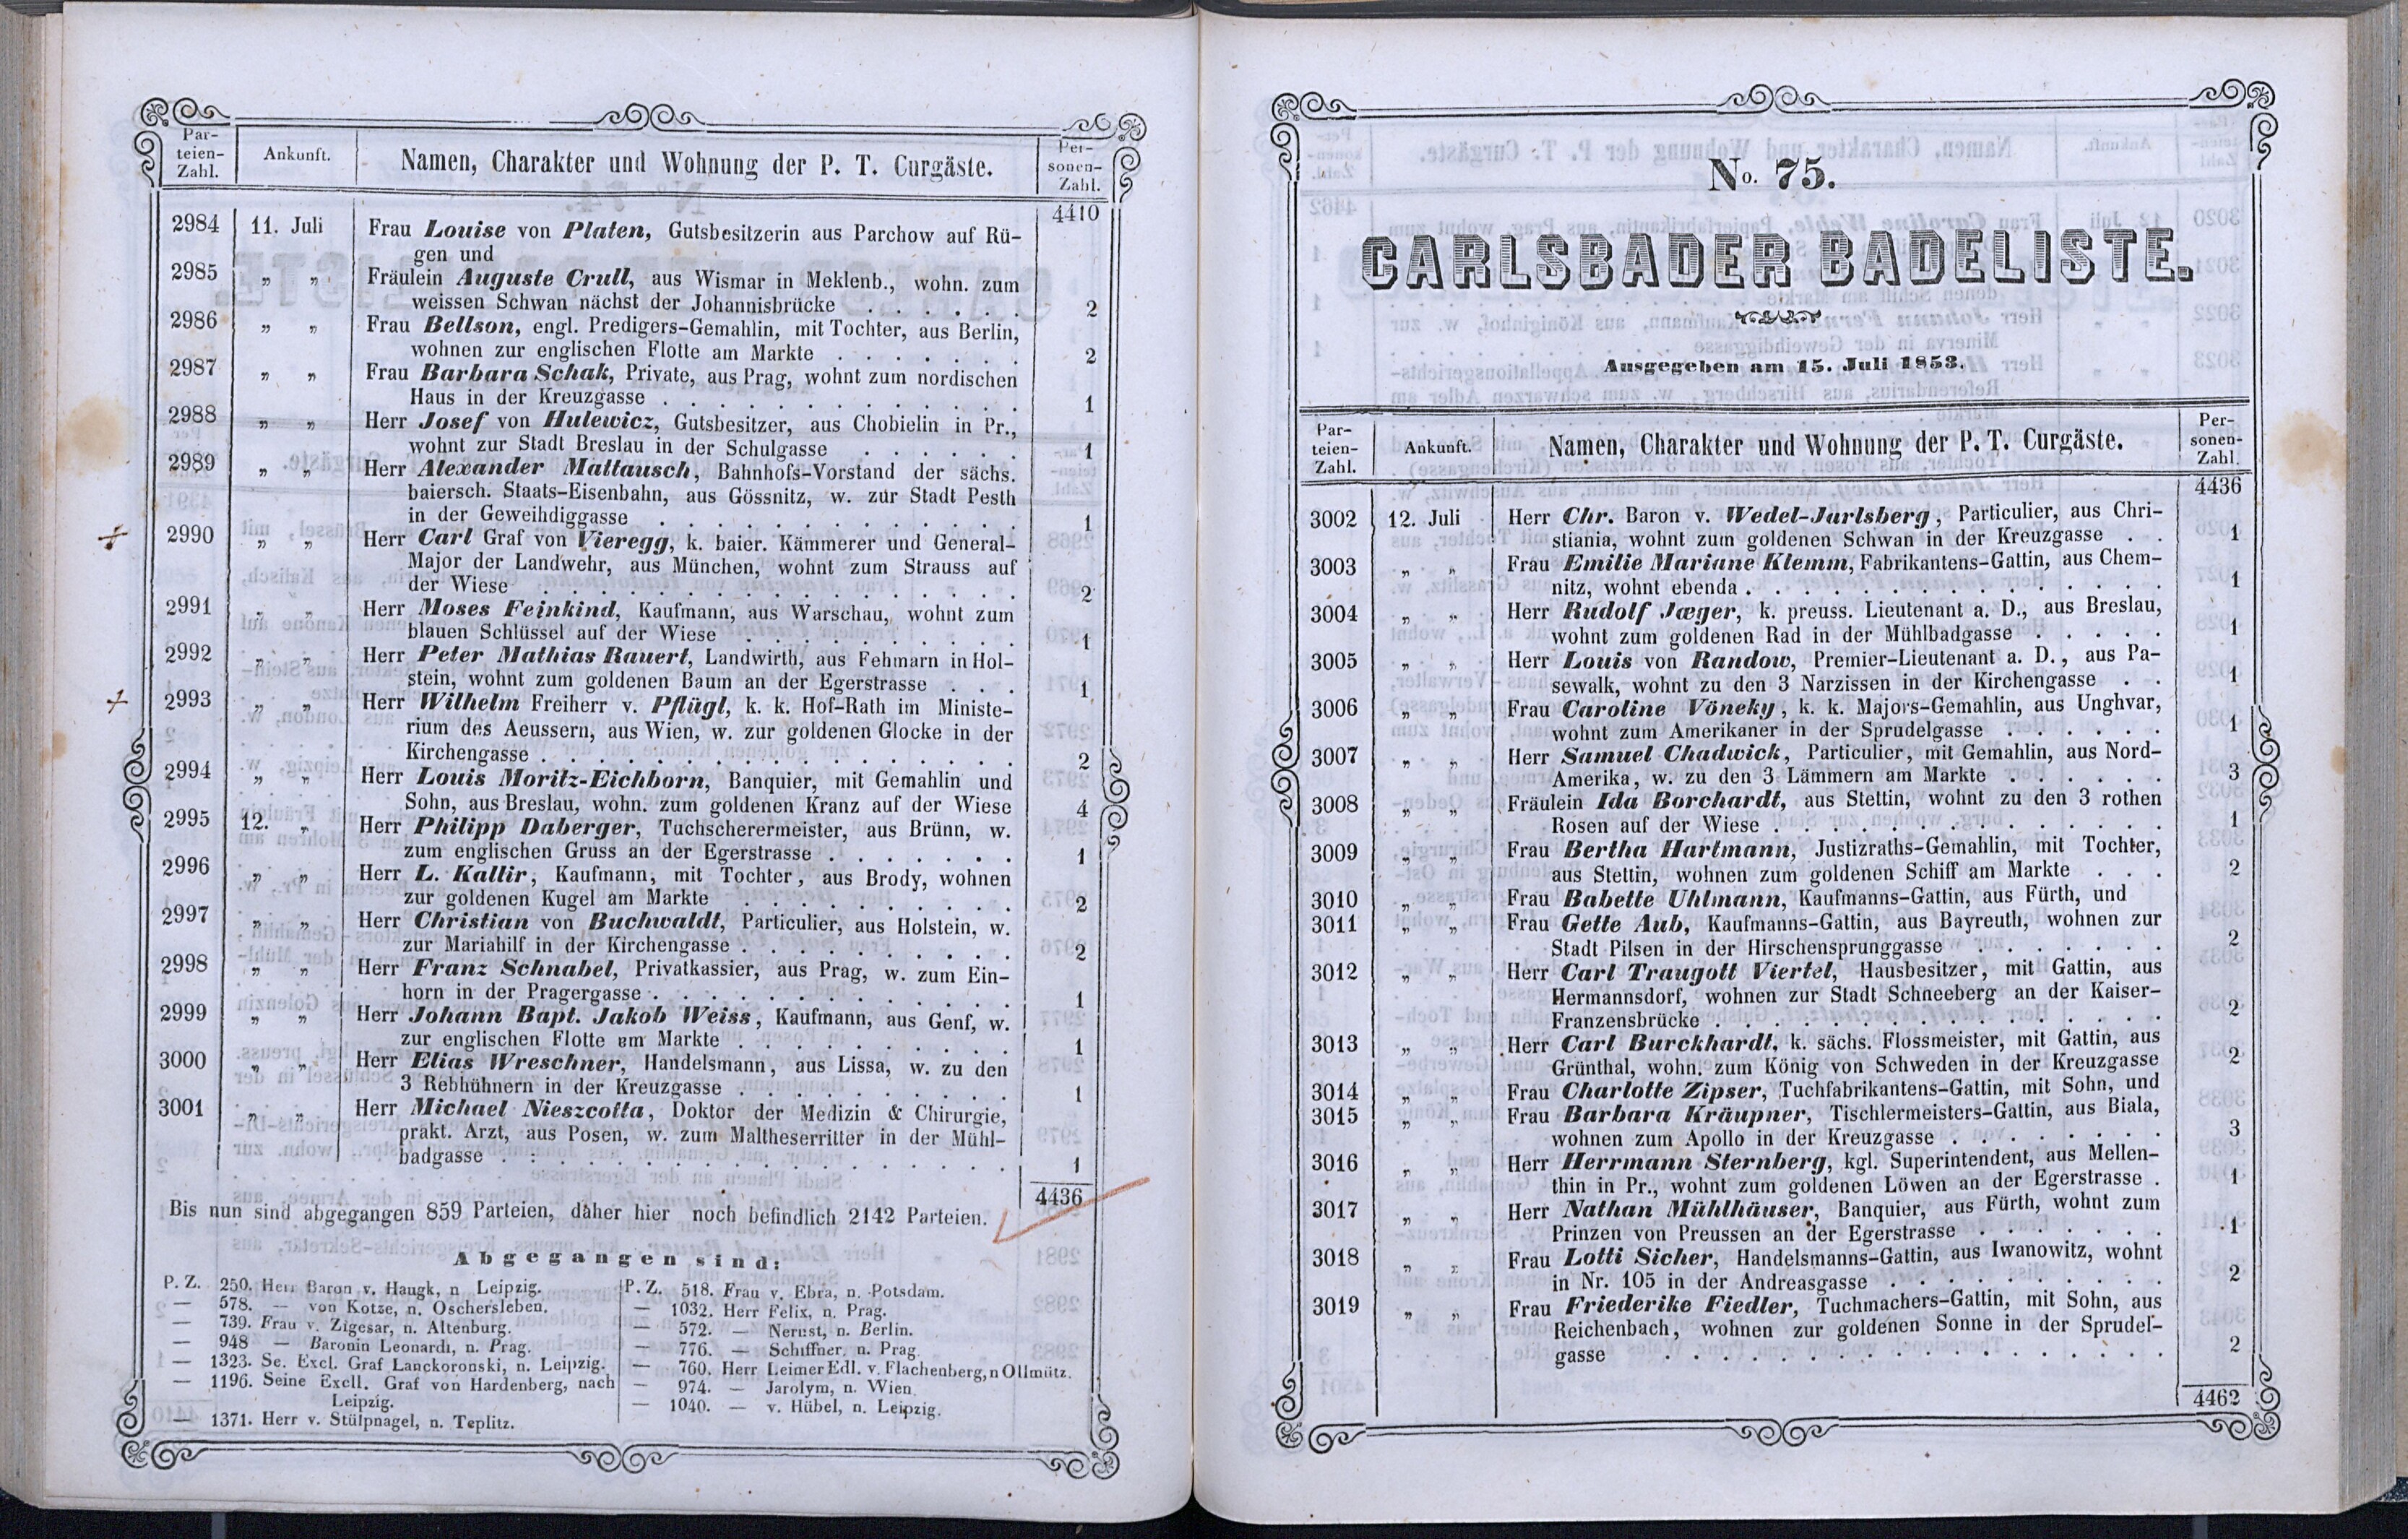 Par-
teien-
Zahl.
Ankunft.
Namen, Charakter und Wohnung der P. T. Curgäste.
Per-
sonen-
Zahl.
4410
2984 11. Juli Frau Louise von Platen, Gutsbesitzerin aus Parchow auf Rü-
gen und
2985 „ „ Fräulein Auguste Crull, aus Wismar in Meklenb., wohn. zum
weissen Schwan nächst der Johannisbrücke . . . . . . 2
2986 „ „ Frau Bellson, engl. Predigers-Gemahlin, mit Tochter, aus Berlin,
wohnen zur englischen Flotte am Markte . . . . . . . 2
2987 „ „ Frau Barbara Schak, Private, aus Prag, wohnt zum nordischen
Haus in der Kreuzgasse . . . . . . . . . . . . . 1
2988 „ „ Herr Josef von Hulewicz, Gutsbesitzer, aus Chobielin in Pr.,
wohnt zur Stadt Breslau in der Schulgasse . . . . . . 1
2989 „ „ Herr Alexander Mattausch, Bahnhofs-Vorstand der sächs.
baiersch. Staats-Eisenbahn, aus Gössnitz, w. zur Stadt Pesth
in der Geweihdiggasse . . . . . . . . . . . . . 1
2990 „ „ Herr Carl Graf von Vieregg, k. baier. Kämmerer und General-
Major der Landwehr, aus München, wohnt zum Strauss auf
der Wiese . . . . . . . . . . . . . . . . . 2
2991 „ „ Herr Moses Feinkind, Kaufmann, aus Warschau, wohnt zum
blauen Schlüssel auf der Wiese . . . . . . . . . . 1
2992 „ „ Herr Peter Mathias Rauert, Landwirth, aus Fehmarn in Hol-
stein, wohnt zum goldenen Baum an der Egerstrasse . . . 1
2993 „ „ Herr Wilhelm Freiherr v. Pflügl, k. k. Hof-Rath im Ministe-
rium des Aeussern, aus Wien, w. zur goldenen Glocke in der
Kirchengasse . . . . . . . . . . . . . . . . 2
2994 „ „ Herr Louis Moritz-Eichborn, Banquier, mit Gemahlin und
Sohn, aus Breslau, wohn. zum goldenen Kranz auf der Wiese 4
2995 12. „ Herr Philipp Daberger, Tuchscherermeister, aus Brünn, w.
zum englischen Gruss an der Egerstrasse . . . . . . . 1
2996 „ „ Herr L. Kallir, Kaufmann, mit Tochter, aus Brody, wohnen
zur goldenen Kugel am Markte . . . . . . . . . . 2
2997 „ „ Herr Christian von Buchwaldt, Particulier, aus Holstein, w.
zur Mariahilf in der Kirchengasse . . . . . . . . . . 2
2998 „ „ Herr Franz Schnabel, Privatkassier, aus Prag, w. zum Ein-
horn in der Pragergasse . . . . . . . . . . . . . 1
2999 „ „ Herr Johann Bapt. Jakob Weiss, Kaufmann, aus Genf, w.
zur englischen Flotte am Markte . . . . . . . . . . 1
3000 „ „ Herr Elias Wreschner, Handelsmann, aus Lissa, w. zu den
3 Rebhühnern in der Kreuzgasse . . . . . . . . . 1
3001 „ „ Herr Michael Nieszcotta, Doktor der Medizin & Chirurgie,
prakt. Arzt, aus Posen, w. zum Maltheserritter in der Mühl-
badgasse . . . . . . . . . . . . . . . . . . 1
4436
Bis nun sind abgegangen 859 Parteien, daher hier noch befindlich 2142 Parteien.
Abgegangen sind:
P. Z. 250. Herr Baron v. Haugk, n Leipzig.
— 578. — von Kotze, n. Oschersleben.
— 739. Frau v. Zigesar, n. Altenburg.
— 948 — Baronin Leonardi, n. Prag.
— 1323. Se. Excl. Graf Lanckoronski, n. Leipzig.
— 1196. Seine Excll. Graf von Hardenberg, nach
Leipzig.
— 1371. Herr v. Stülpnagel, n. Teplitz.
P. Z. 518. Frau v. Ebra, n. Potsdam.
— 1032. Herr Felix, n. Prag.
— 572. — Nernst, n. Berlin.
— 776. — Schiffner, n. Prag
— 760. Herr Leimer Edl. v. Flachenberg, n Ollmütz.
— 974. — Jarolym, n. Wien.
— 1040. — v. Hübel, n. Leipzig.
No. 75.
CARLSBADER BADELISTE.
Ausgegeben am 15. Juli 1853.
Par-
teien-
Zahl.
Ankunft.
Namen, Charakter und Wohnung der P. T. Curgäste.
Per-
sonen-
Zahl.
4436
3002 12. Juli Herr Chr. Baron v. Wedel-Jarlsberg, Particulier, aus Chri-
stiania, wohnt zum goldenen Schwan in der Kreuzgasse . . 1
3003 „ „ Frau Emilie Mariane Klemm, Fabrikantens-Gattin, aus Chem-
nitz, wohnt ebenda . . . . . . . . . . . . . . . 1
3004 „ „ Herr Rudolf Jæger, k. preuss. Lieutenant a. D., aus Breslau,
wohnt zum goldenen Rad in der Mühlbadgasse . . . . . 1
3005 „ „ Herr Louis von Randow, Premier-Lieutenant a. D., aus Pa-
sewalk, wohnt zu den 3 Narzissen in der Kirchengasse . . 1
3006 „ „ Frau Caroline Vöneky, k. k. Majors-Gemahlin, aus Unghvar,
wohnt zum Amerikaner in der Sprudelgasse . . . . . . 1
3007 „ „ Herr Samuel Chadwick, Particulier, mit Gemahlin, aus Nord-
Amerika, w. zu den 3 Lämmern am Markte . . . . . . 3
3008 „ „ Fräulein Ida Borchardt, aus Stettin, wohnt zu den 3 rothen
Rosen auf der Wiese . . . . . . . . . . . . . . 1
3009 „ „ Frau Bertha Hartmann, Justizraths-Gemahlin, mit Tochter,
aus Stettin, wohnen zum goldenen Schiff am Markte . . . 2
3010 „ „ Frau Babette Uhlmann, Kaufmanns-Gattin, aus Fürth, und
3011 „ „ Frau Gette Aub, Kaufmanns-Gattin, aus Bayreuth, wohnen zur
Stadt Pilsen in der Hirschensprunggasse . . . . . . . 2
3012 „ „ Herr Carl Traugott Viertel, Hausbesitzer, mit Gattin, aus
Hermannsdorf, wohnen zur Stadt Schneeberg an der Kaiser-
Franzensbrücke . . . . . . . . . . . . . . . . 2
3013 „ „ Herr Carl Burckhardt, k. sächs. Flossmeister, mit Gattin, aus
Grünthal, wohn. zum König von Schweden in der Kreuzgasse 2
3014 „ „ Frau Charlotte Zipser, Tuchfabrikantens-Gattin, mit Sohn, und
3015 „ „ Frau Barbara Kräupner, Tischlermeisters-Gattin, aus Biala,
wohnen zum Apollo in der Kreuzgasse . . . . . . . . 3
3016 „ „ Herr Herrmann Sternberg, kgl. Superintendent, aus Mellen-
thin in Pr., wohnt zum goldenen Löwen an der Egerstrasse . 1
3017 „ „ Herr Nathan Mühlhäuser, Banquier, aus Fürth, wohnt zum
Prinzen von Preussen an der Egerstrasse . . . . . . . 1
3018 „ „ Frau Lotti Sicher, Handelsmanns-Gattin, aus Iwanowitz, wohnt
in Nr. 105 in der Andreasgasse . . . . . . . . . . 2
3019 „ „ Frau Friederike Fiedler, Tuchmachers-Gattin, mit Sohn, aus
Reichenbach, wohnen zur goldenen Sonne in der Sprudel-
gasse . . . . . . . . . . . . . . . . . . 2
4462